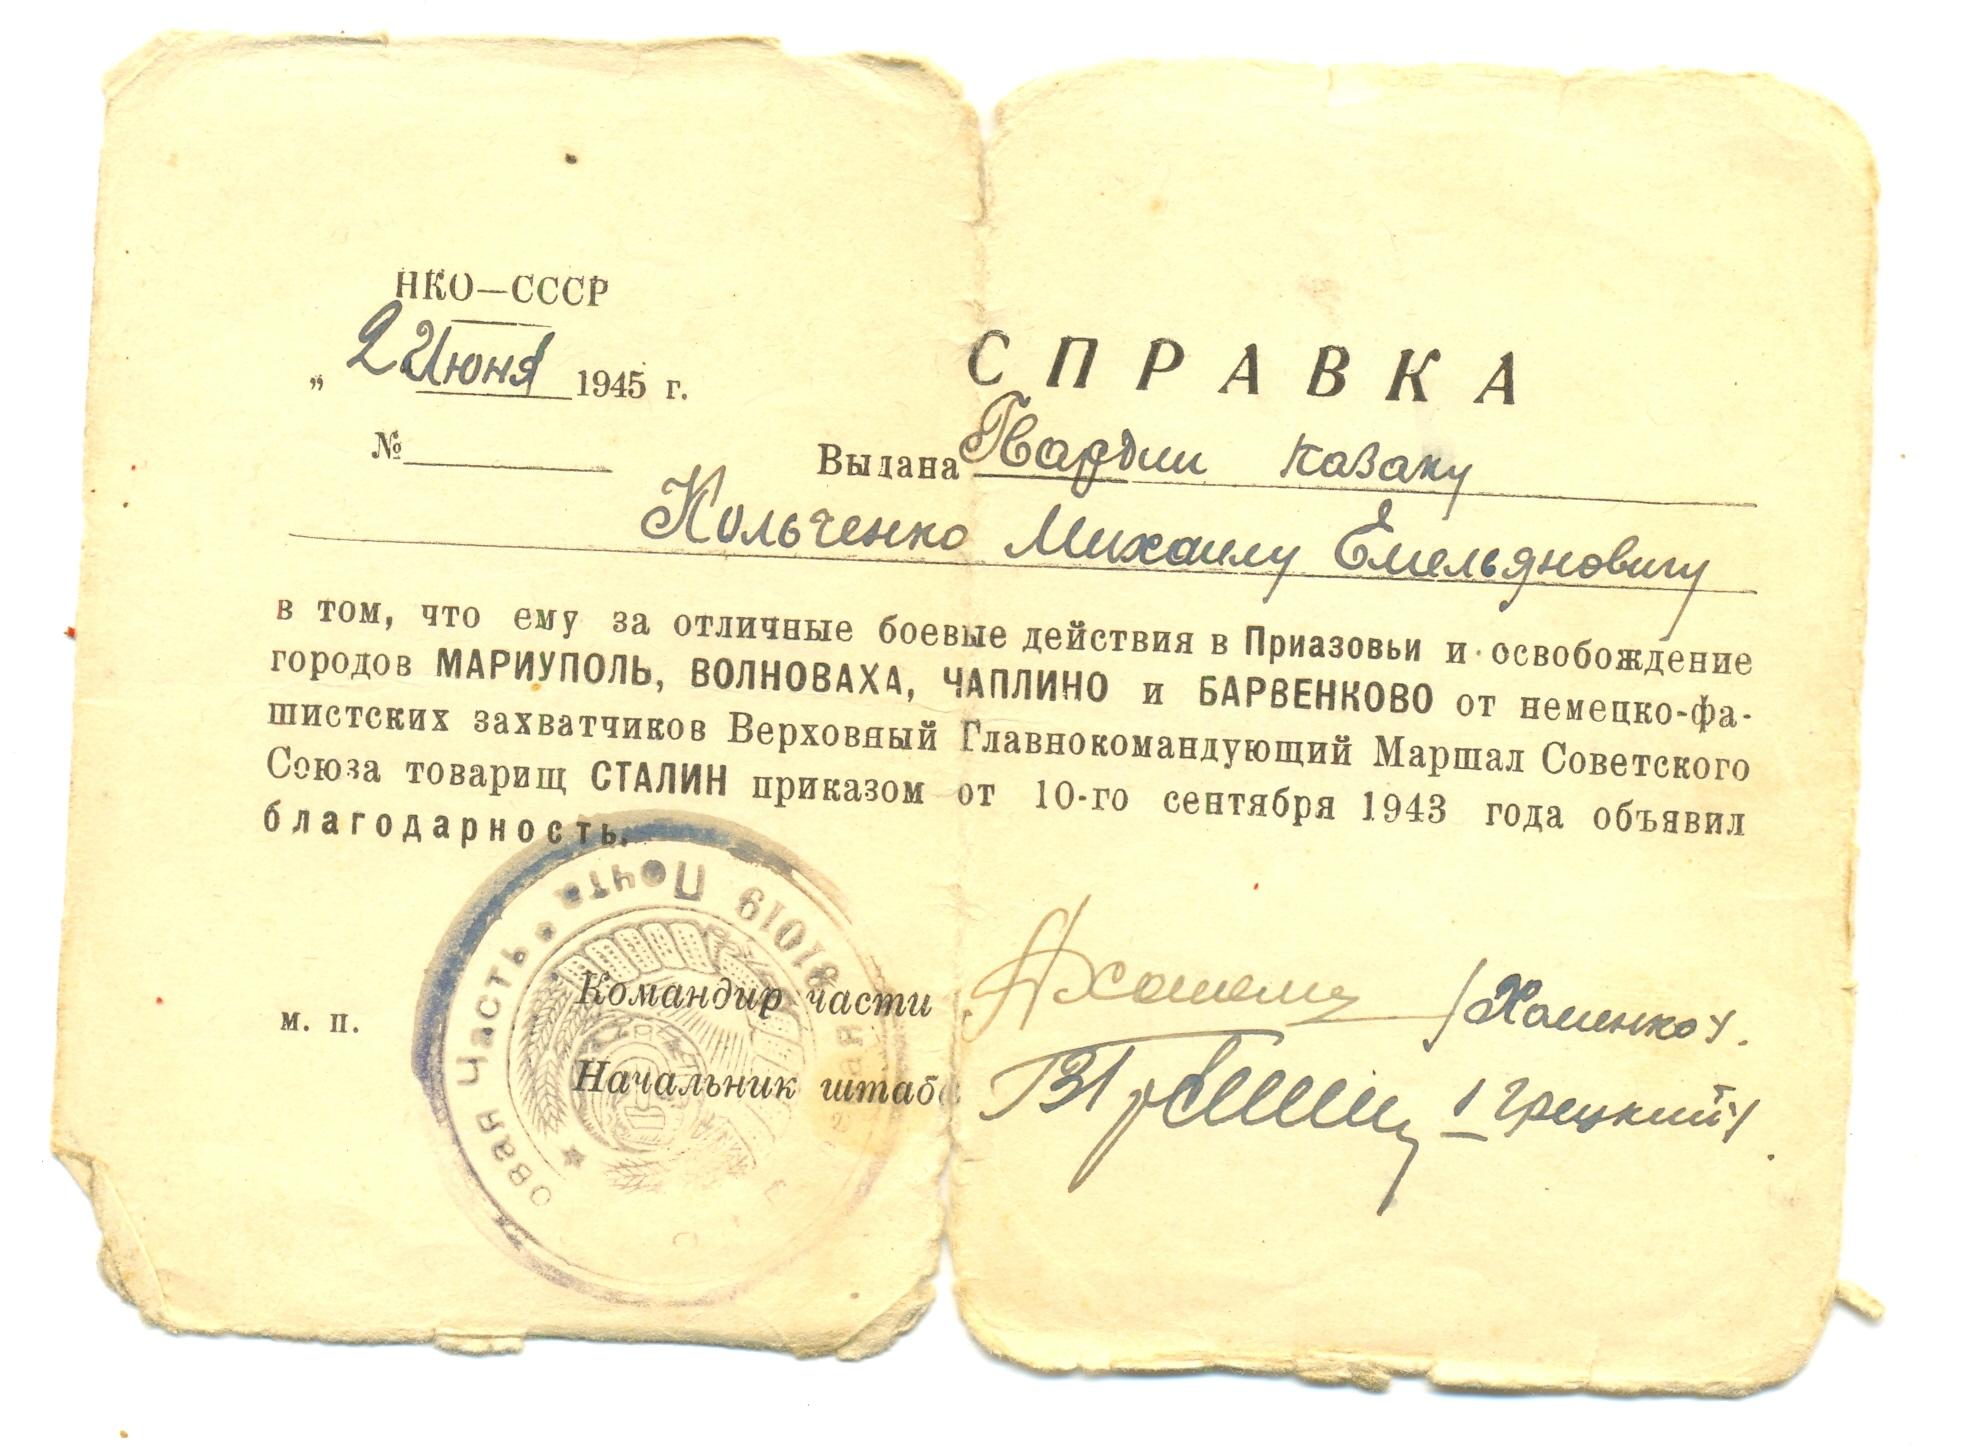 НКО—СССР
„ 2 Июня 1945 г.
СПРАВКА
№
Выдана Гвардии казаку
Кольченко Михаилу Емельяновичу
в том, что ему за отличные боевые действия в Приазовьи и освобождение
городов МАРИУПОЛЬ, ВОЛНОВАХА, ЧАПЛИНО и БАРВЕНКОВО от немецко-фа-
шистских захватчиков Верховный Главнокомандующий Маршал Советского
Союза товарищ СТАЛИН приказом от 10-го сентября 1943 года объявил
благодарность.
овая Часть • Почта 81019
м. п.
Командир части /Хоменко/.
Начальник штаба /Грецкий/.